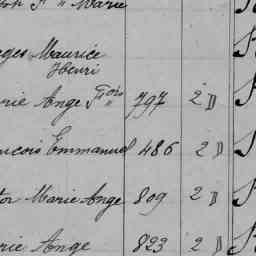 Marie
ges Maurice
Henri
rie Ange Fois 797 2 D
ncois Emmanuel 486 2 D
tor Marie Ange 809 2 D
rie Ange 823 2 D